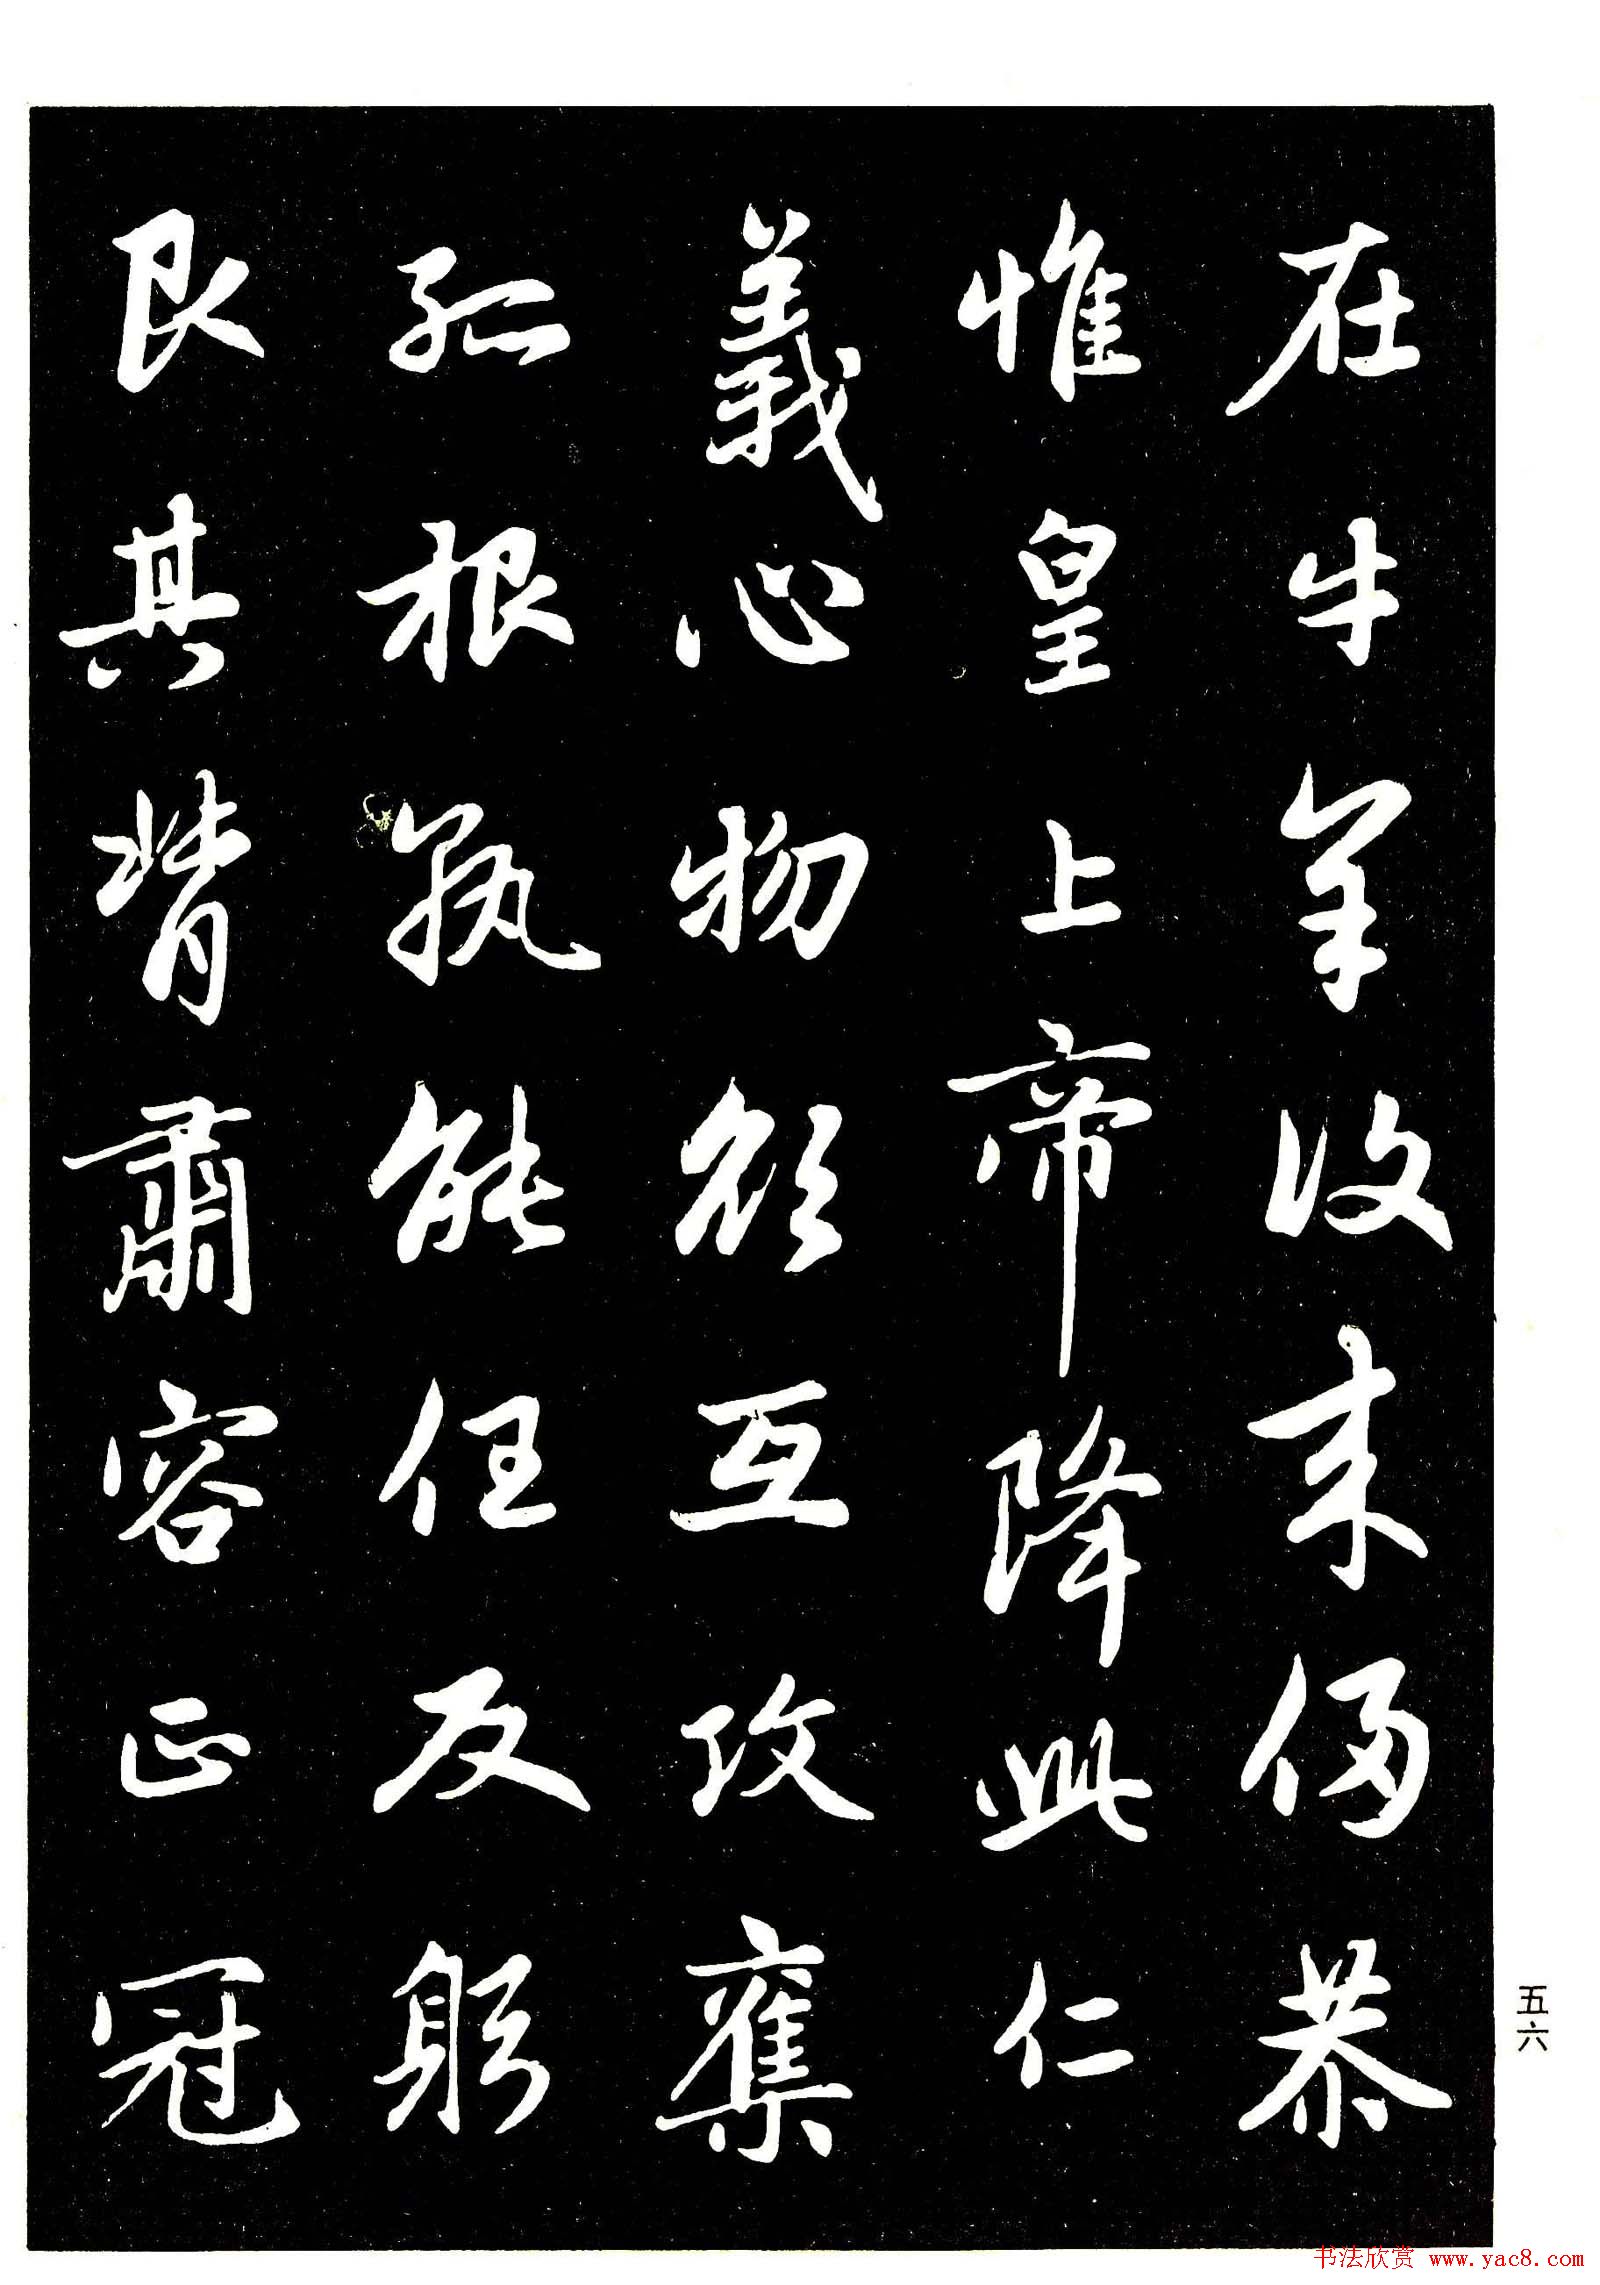 在牛羊復来侵恭
惟皇上帝降此仁
義心物欲互攻奪
孤根孰能任反躬
艮其背肅容正冠
五六
书法欣赏 www.yac8.com